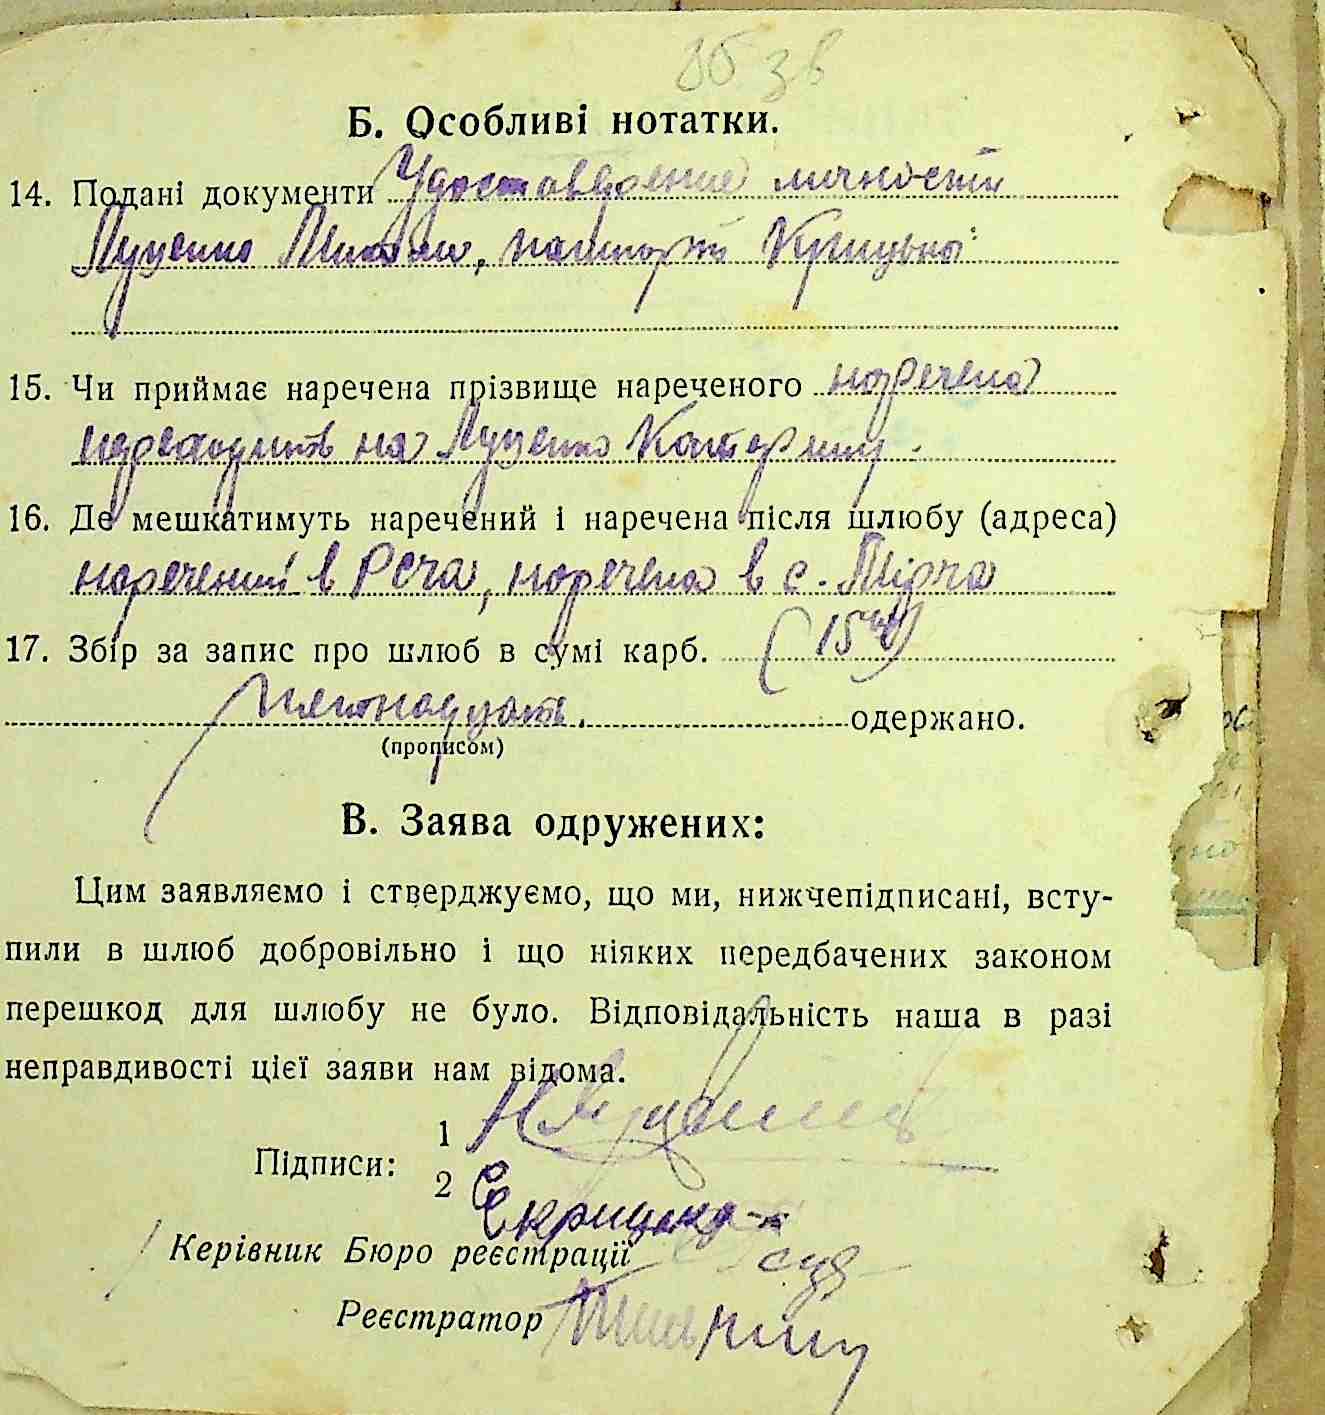 Б. Особливі нотатки.
14. Подані документи Удостоверение личности
Луценко Миколи, пашпорт Крицької
15. Чи приймає наречена прізвище нареченого наречена
переходить на Луценко Катерину.
16. Де мешкатимуть наречений і наречена після шлюбу (адреса)
наречений в РСЧА, наречена в с. Мірча
17. Збір за запис про шлюб в сумі карб. (15
пятнадцать. одержано.
(прописом)
В. Заява одружених:
Цим заявляємо і стверджуємо, що ми, нижчепідписані, всту-
пили в шлюб добровільно і що ніяких передбачених законом
перешкод для шлюбу не було. Відповідальність наша в разі
неправдивості цієї заяви нам відома.
1
Підписи:
2 Екрицка
Керівник Бюро реєстрації
Реєстратор